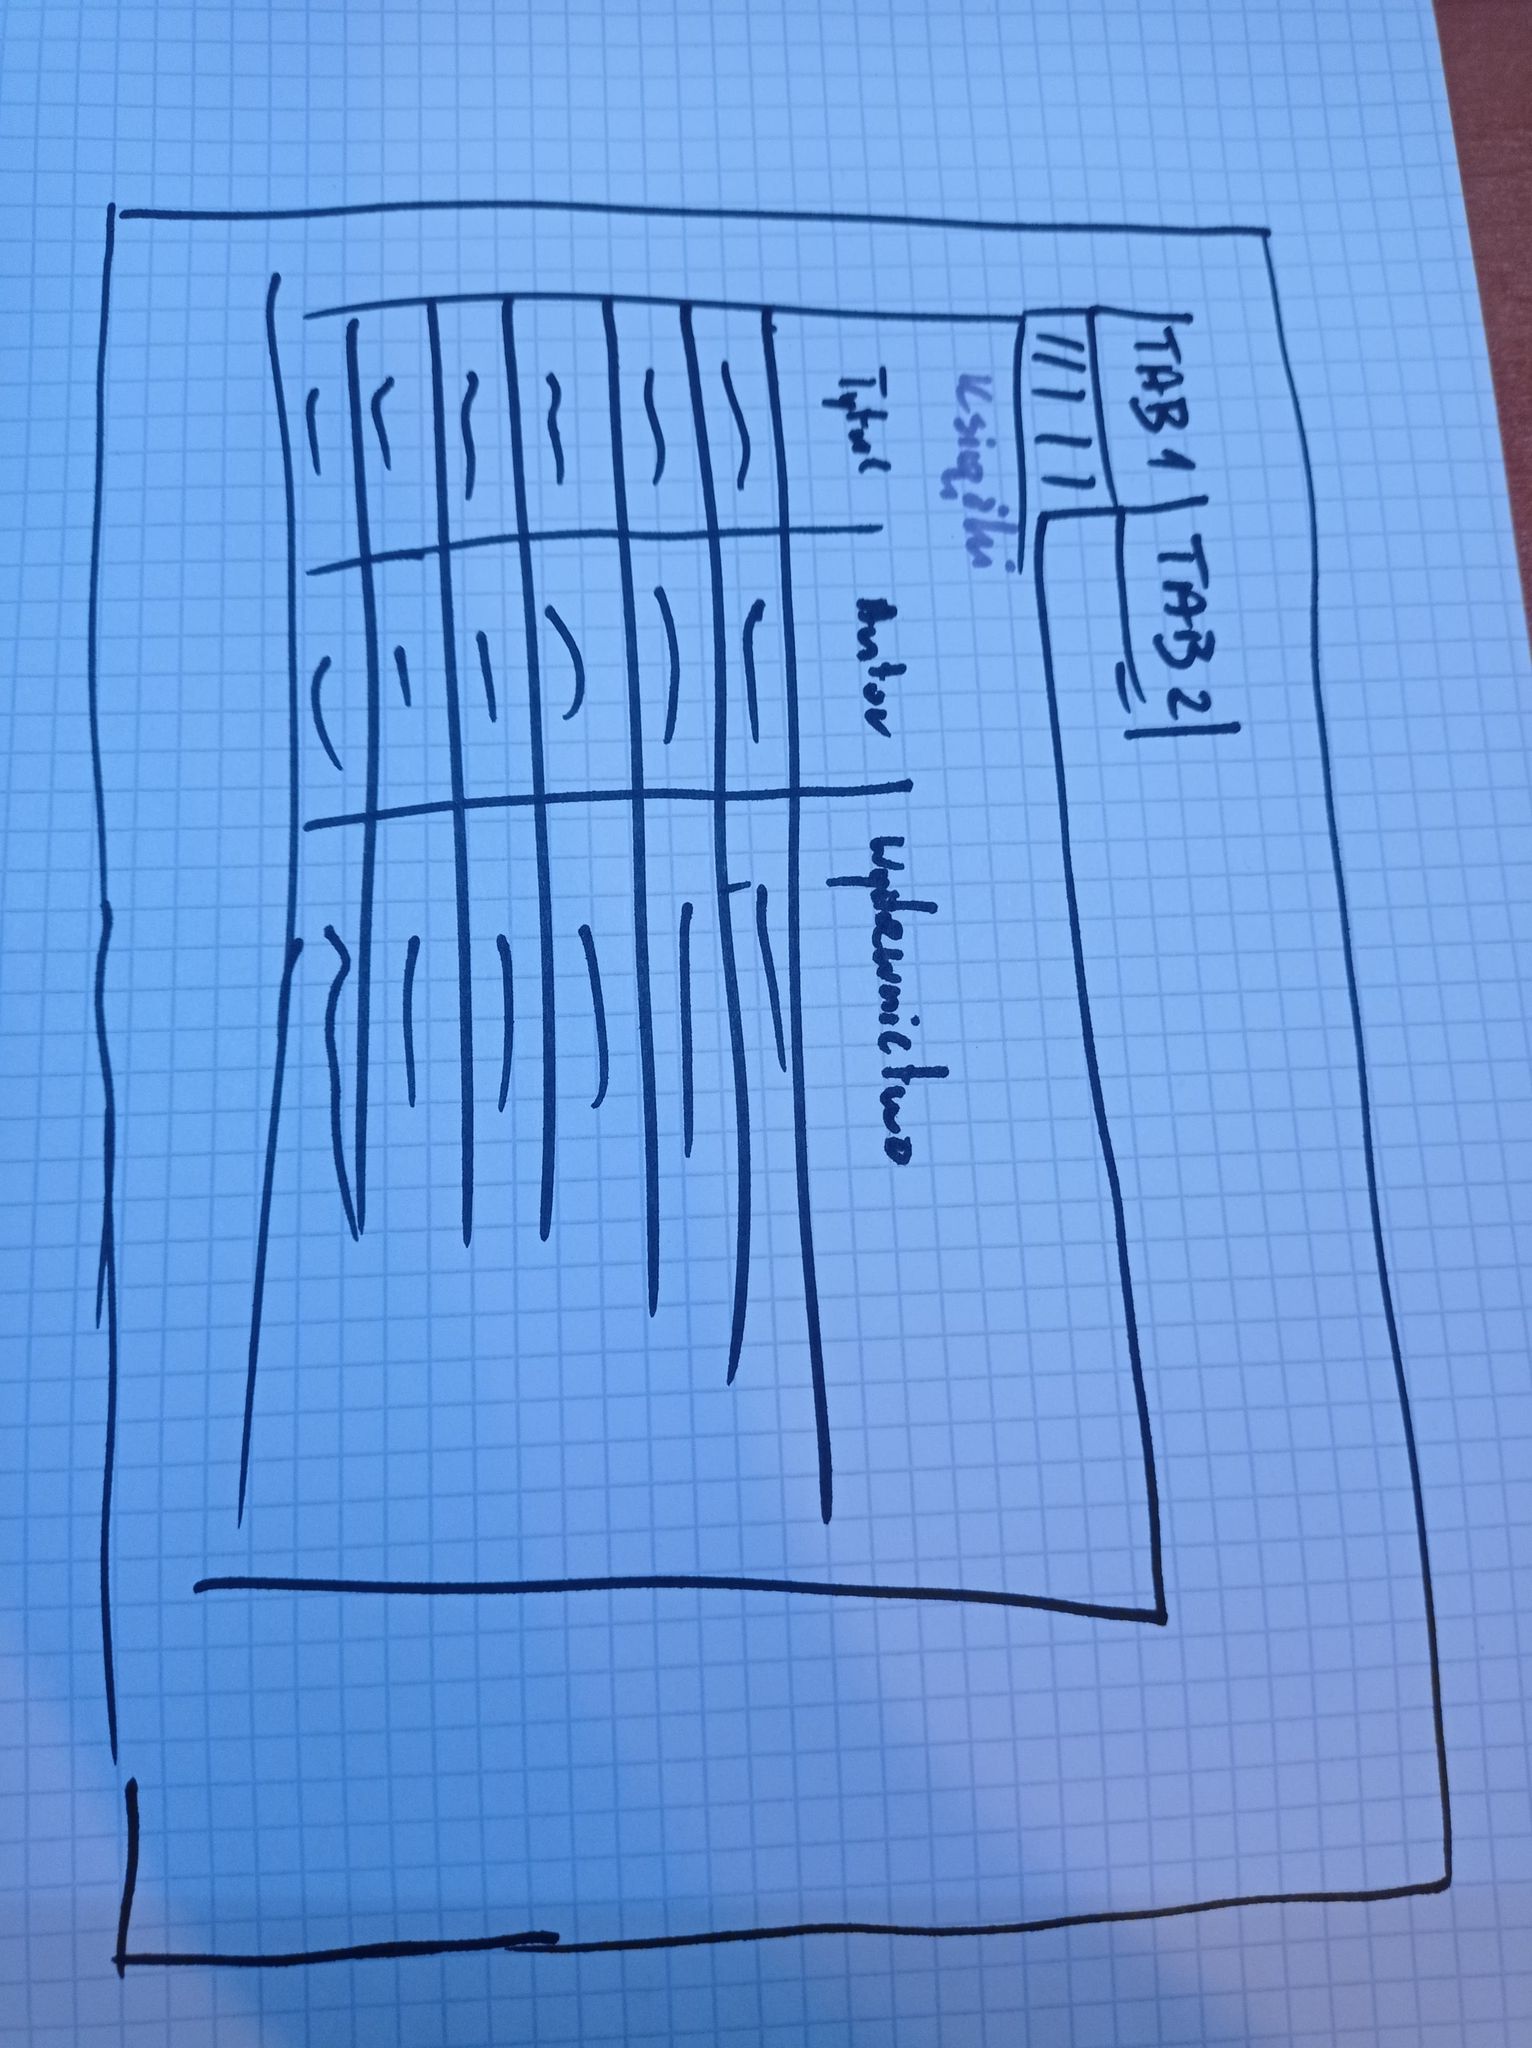 TAB 1 TAB 2
Książki
Tytuł Autor Wydawnictwo